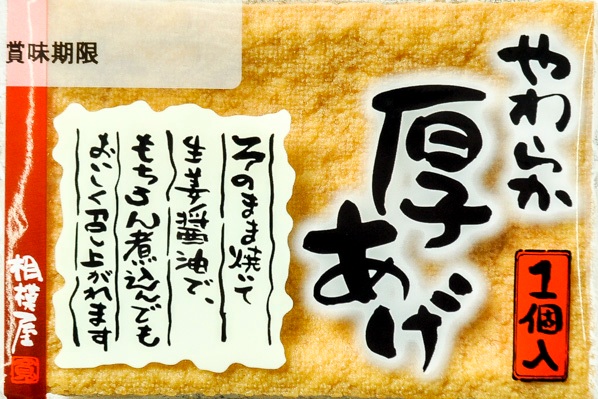 賞味期限
やわらか
厚あげ
1個入
そのまま焼いて
生姜醤油で、
もちろん煮込んでも
おいしく召し上がれます
相模屋